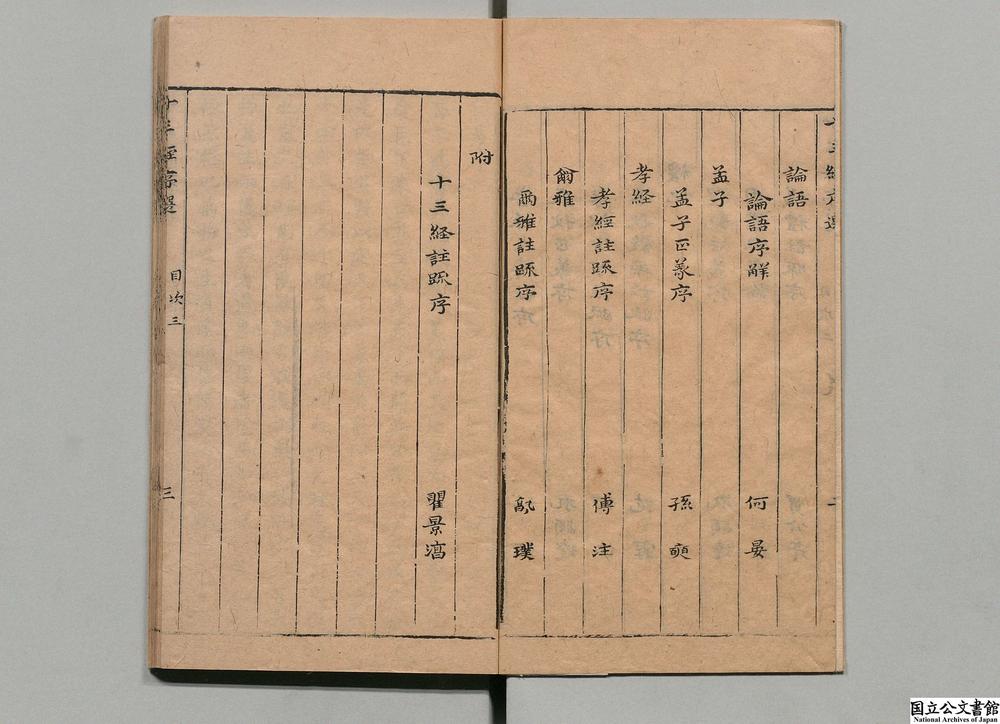 論語
論語序解 何晏
孟子
孟子正義序 孫奭
孝経
孝經註䟽序 傅注
爾雅
爾雅註䟽序 郭璞
附
十三経註䟽序 瞿景淳
十三経序選
目次三
三
国立公文書館
National Archives of Japan